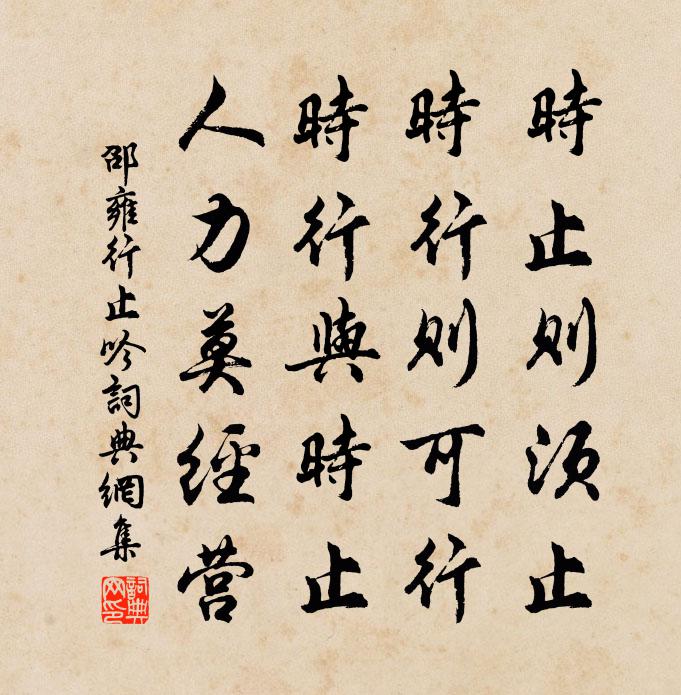 時止則須止
時行則可行
時行與時止
人力莫經营
邵雍行止吟詞典網集
詞典网印